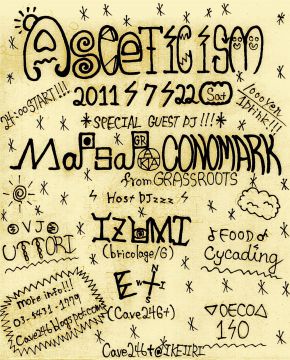 Asceticism
2011 7 22 Sat
24:00START!!!
*SPECIAL GUEST DJ!!!*
GR
CONOMARK
from GRASSROOTS
Host DJzzz
VJ
UTTORI
IZUMI
(bricolage/G)
FOOD
Cycading
more info!!!
03-5431-1999
Cave246.blogspot.com
(Cave246+)
DECO
140
Cave246+@IKEJIRI